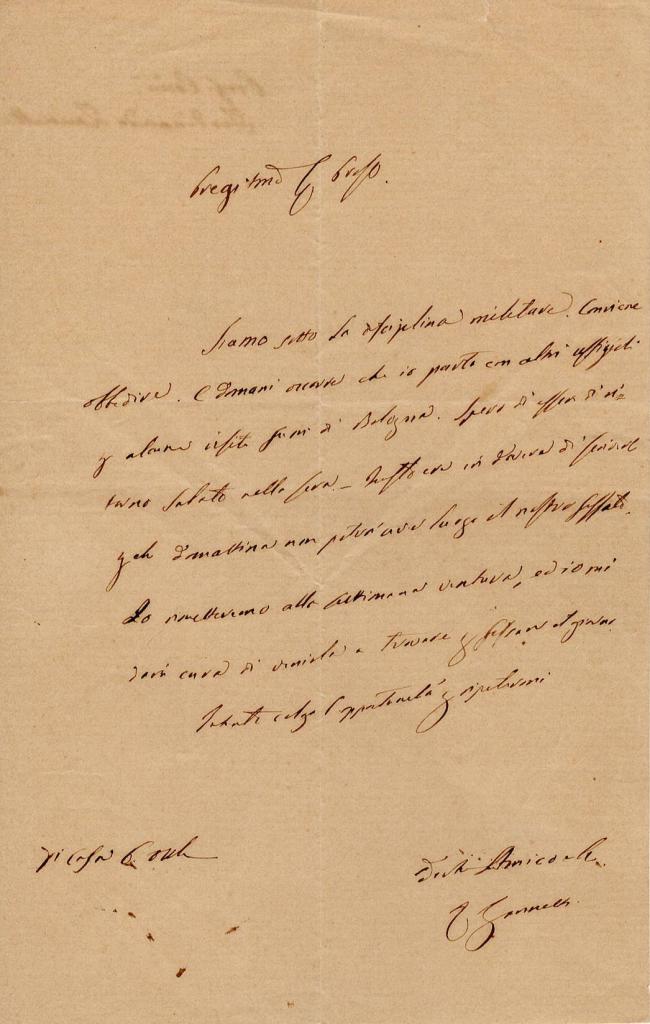 Pregmo Sig Profr.
Siamo sotto la disciplina militare. Conviene
obbedire. E domani occorre che io parta con altri uffiziali
p alcune visite fuori di Bologna. Spero di esser di ri=
torno Sabato nella sera. – Questo era in dovere di scriverle
domattina non potrà aver luogo il nostro
Lo rimetteremo alla settimana ventura, ed io mi
darò cura di venirla a trovare p fissare il giorno.
Intanto colgo l'opportunità p ripetermi
Di Casa 6
Amico